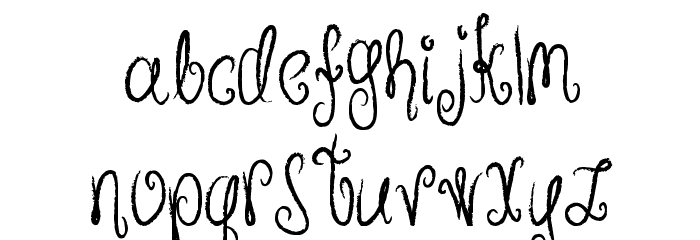 abcdefghijklm
nopqrsturwxyz